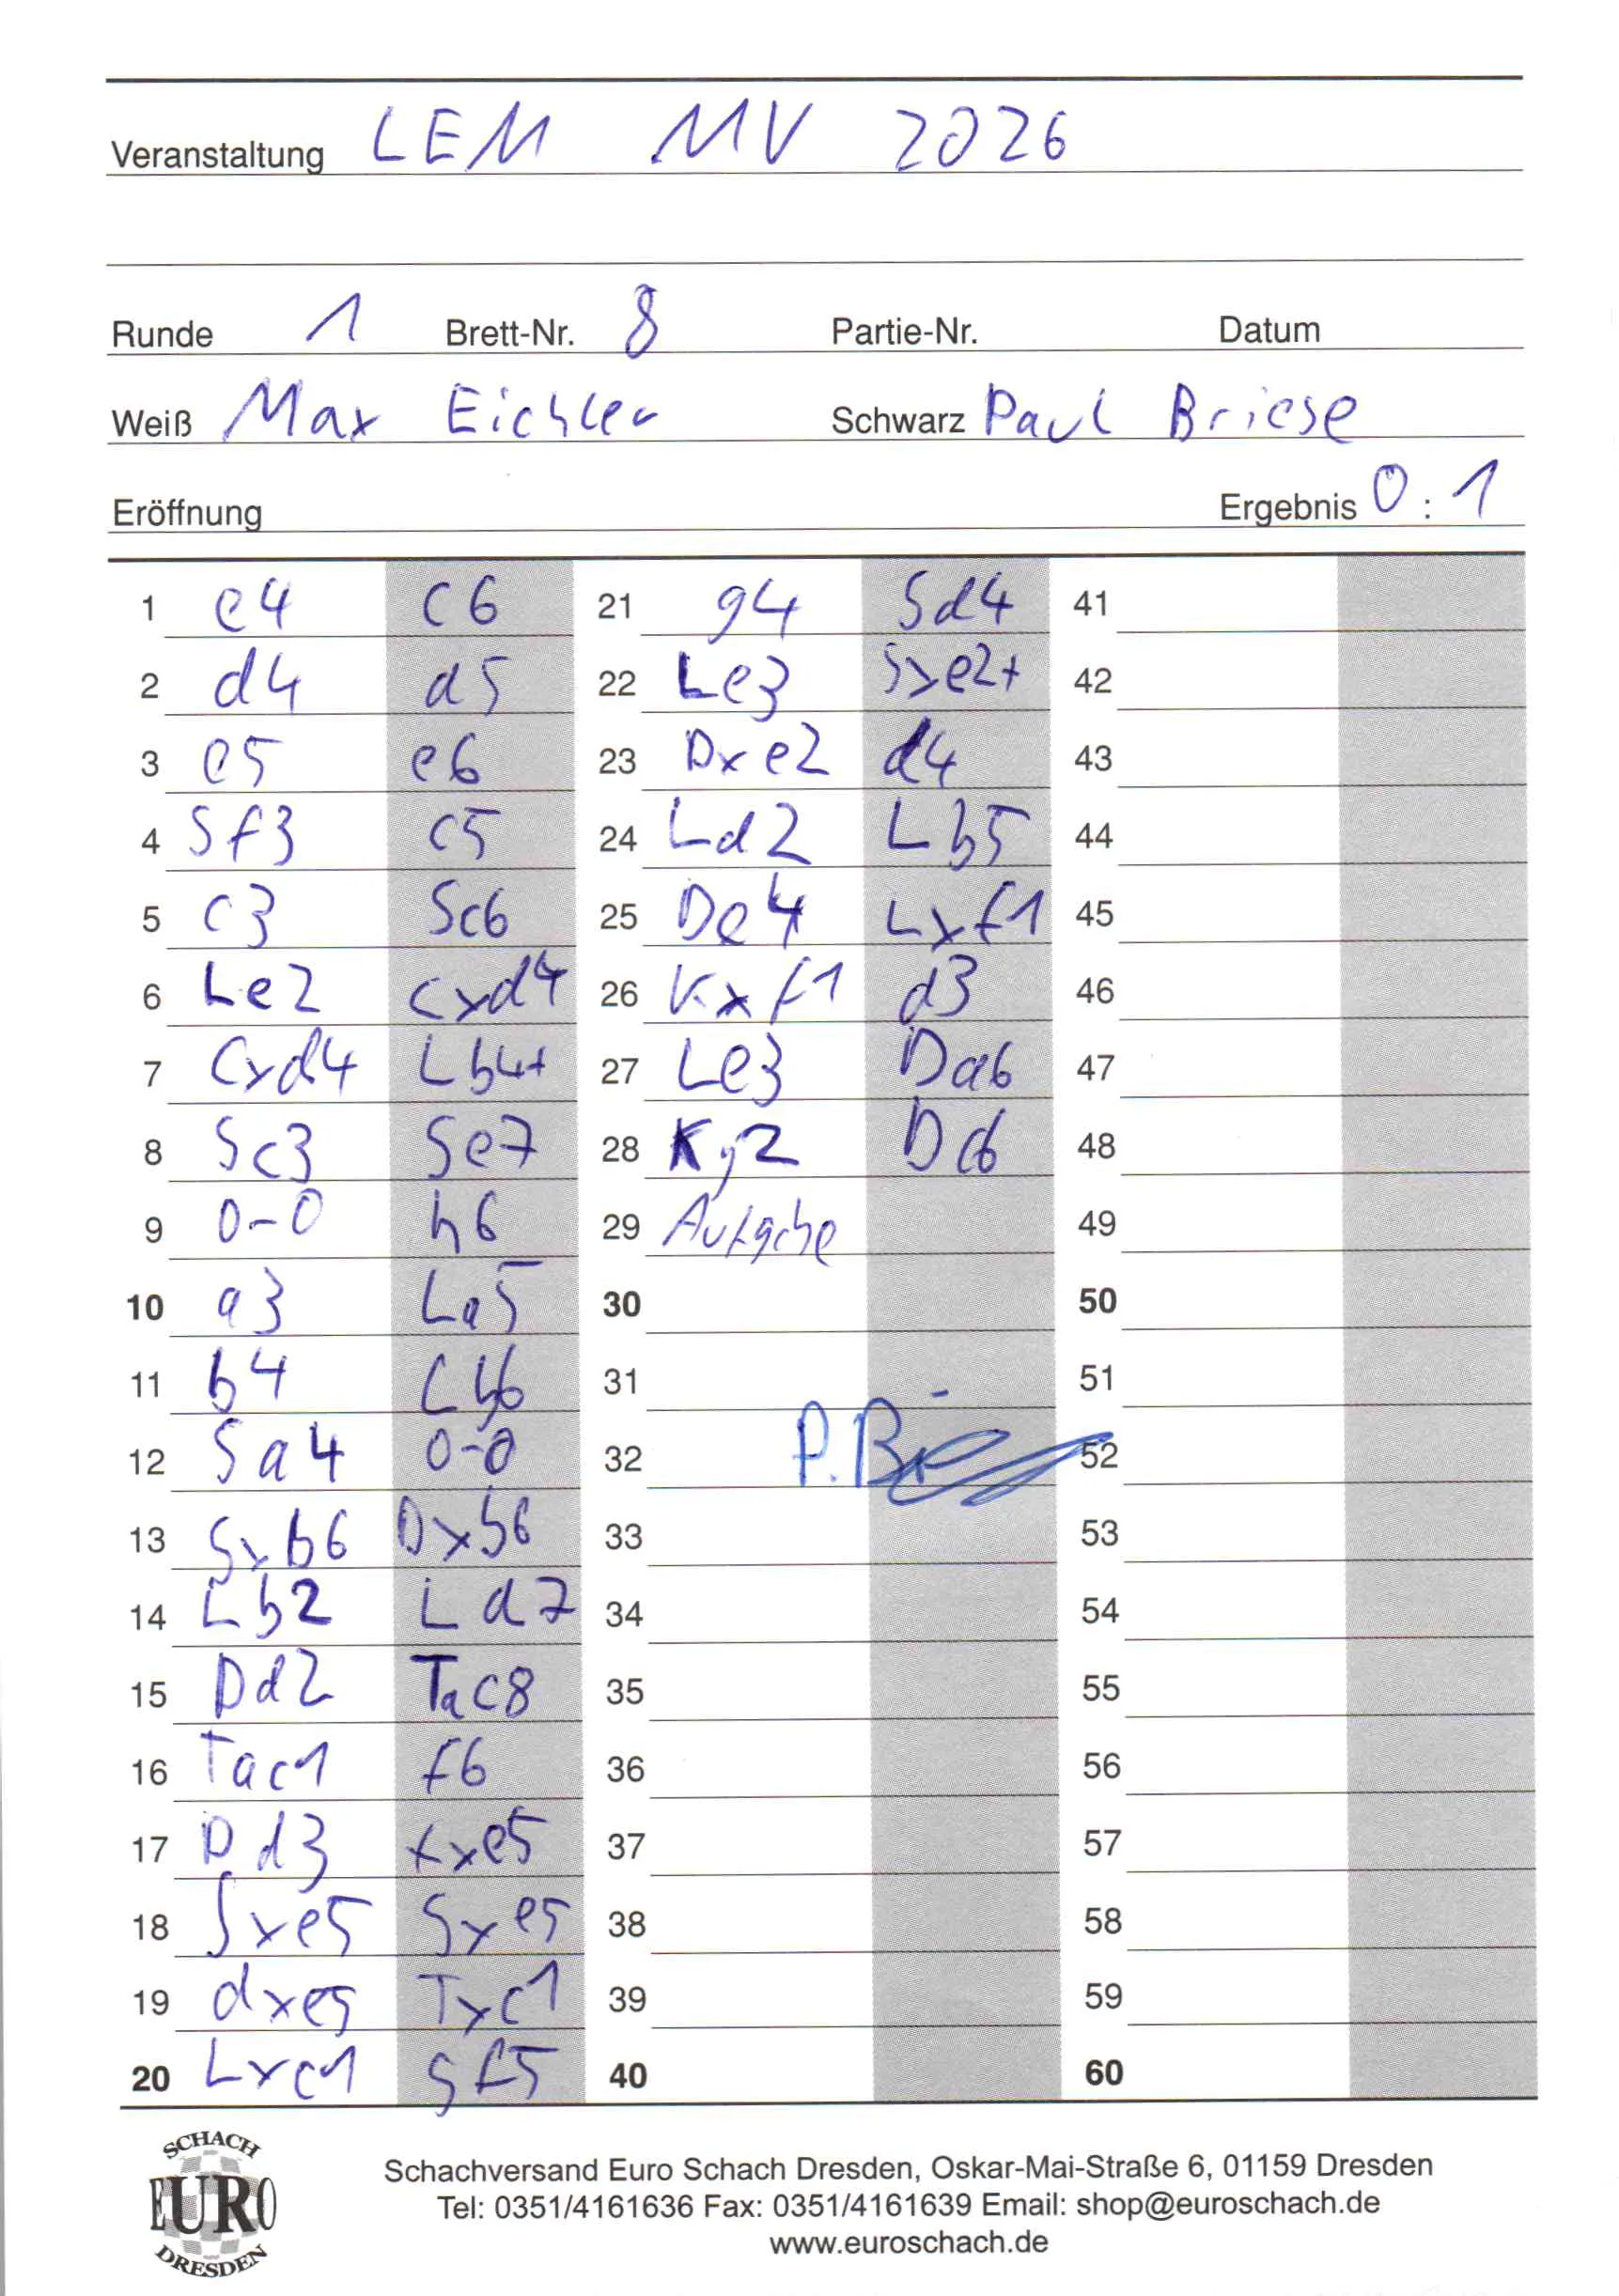 Veranstaltung LEM MV 2026
Runde 1 Brett-Nr. 8 Partie-Nr. Datum
Weiß Max Eichler Schwarz Paul Briese
Eröffnung Ergebnis 0 : 1
1 e4 c6
2 d4 d5
3 e5 e6
4 Sf3 c5
5 c3 Sc6
6 Le2 cxd4
7 cxd4 Lb4+
8 Sc3 Se7
9 0-0 h6
10 a3 La5
11 b4 Lb6
12 Sa4 0-0
13 Sxb6 Dxb6
14 Lb2 Ld7
15 Dd2 Tac8
16 Tac1 f6
17 Dd3 fxe5
18 Sxe5 Sxe5
19 dxe5 Txc1
20 Lxc1 Sf5
21 g4 Sd4
22 Le3 Sxe2+
23 Dxe2 d4
24 Ld2 Lb5
25 De4 Lxf1
26 Kxf1 d3
27 Le3 Da6
28 Kg2 Dc6
29 Aufgabe
30
31
32 P. Briese
33
34
35
36
37
38
39
40
41
42
43
44
45
46
47
48
49
50
51
52
53
54
55
56
57
58
59
60
SCHACH
EURO
DRESDEN
Schachversand Euro Schach Dresden, Oskar-Mai-Straße 6, 01159 Dresden
Tel: 0351/4161636 Fax: 0351/4161639 Email: shop@euroschach.de
www.euroschach.de